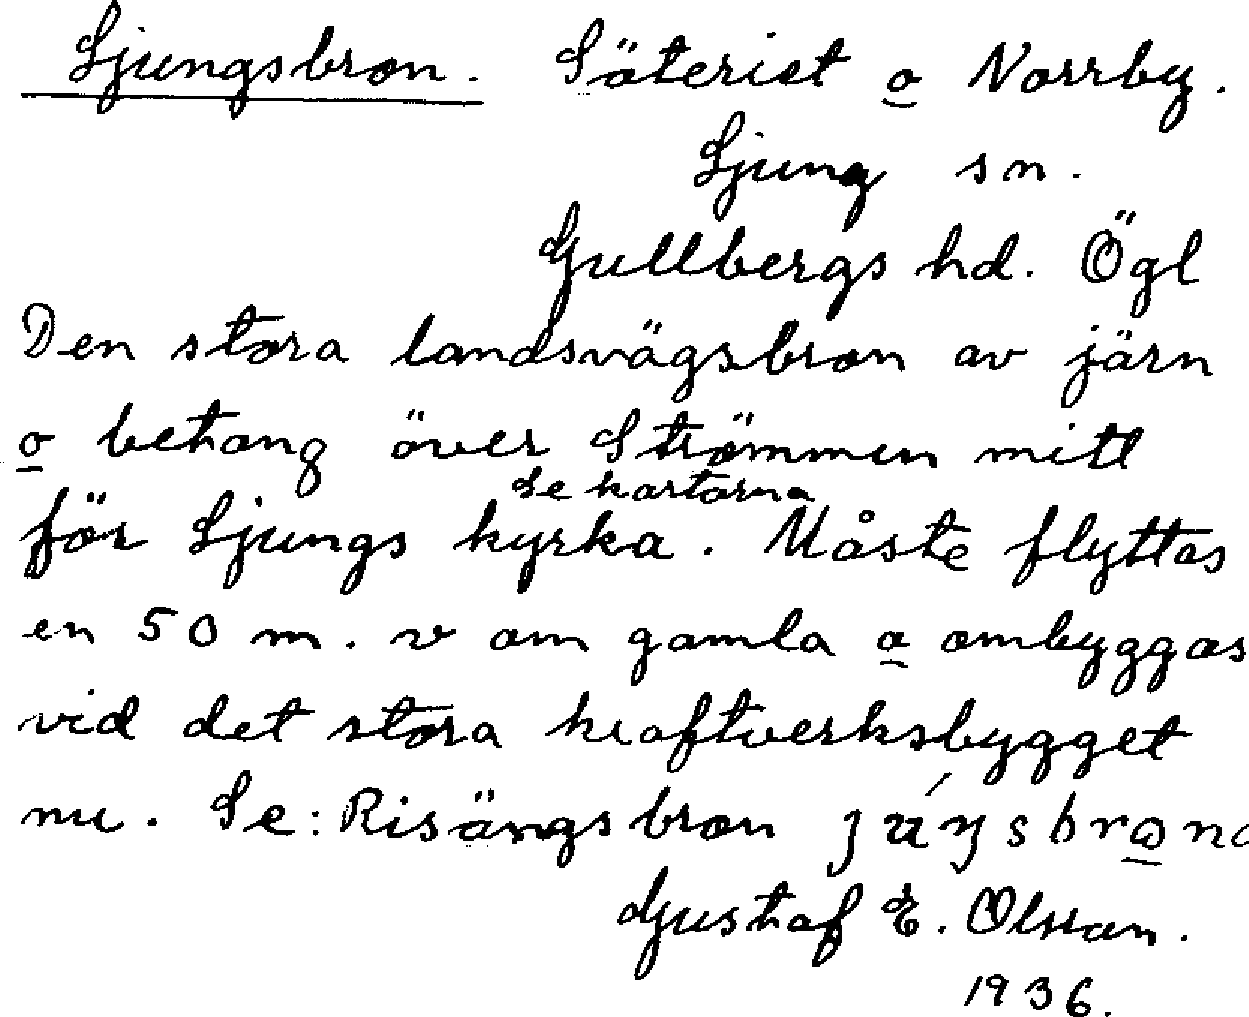 Ljungsbron. Säteriet o Norrby.
Ljung sn.
Gullbergs hd. Ögl
Den stora landsvägsbron av järn
o betong över Strömmen mitt
Se kartorna
för Ljungs kyrka. Måste flyttas
en 50 m. v om gamla o ombyggas
vid det stora kraftverksbygget
nu. Se: Risängsbron
Gustaf E. Olsson.
1936.